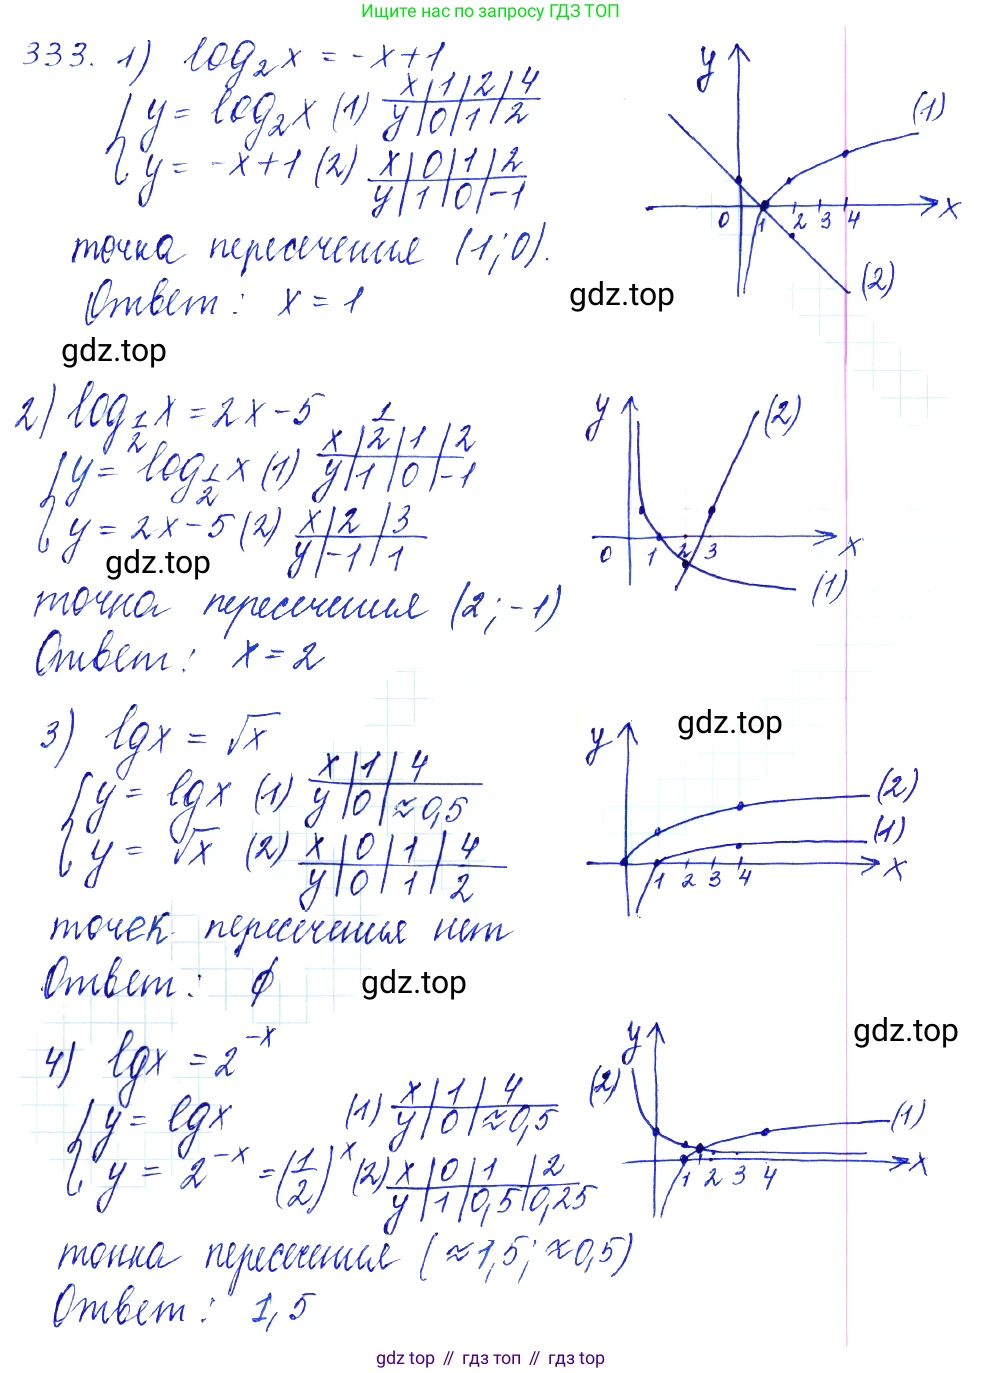 Ищите по запросу ГДЗ ТОП
333. 1) log₂x = -x+1
{ y = log₂x (1) x | 1 | 2 | 4
y | 0 | 1 | 2
y = -x+1 (2) x | 0 | 1 | 2
y | 1 | 0 | -1
точка пересечения (1; 0).
Ответ: x = 1
y
(1)
0 1 2 3 4 x
(2)
gdz.top
gdz.top
2) log_{1/2} x = 2x-5
{ y = log_{1/2} x (1) x | 1/2 | 1 | 2
y | 1 | 0 | -1
y = 2x-5 (2) x | 2 | 3
y | -1 | 1
gdz.top
точка пересечения (2; -1)
Ответ: x = 2
y
(2)
0 1 2 3 x
(1)
3) lgx = √x
{ y = lgx (1) x | 1 | 4
y | 0 | ≈0,5
y = √x (2) x | 0 | 1 | 4
y | 0 | 1 | 2
точек пересечения нет
Ответ: ∅
gdz.top
gdz.top
y
(2)
(1)
1 2 3 4 x
4) lgx = 2^{-x}
{ y = lgx (1) x | 1 | 4
y | 0 | ≈0,5
y = 2^{-x} = (1/2)^x (2) x | 0 | 1 | 2
y | 1 | 0,5 | 0,25
точка пересечения (≈1,5; ≈0,5)
Ответ: 1,5
gdz.top
y
(2)
(1)
1 2 3 4 x
gdz top // гдз топ // gdz top